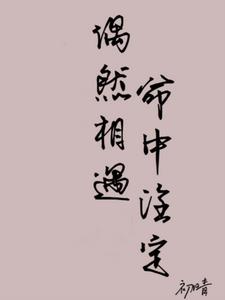 偶然相遇
命中注定
初晴